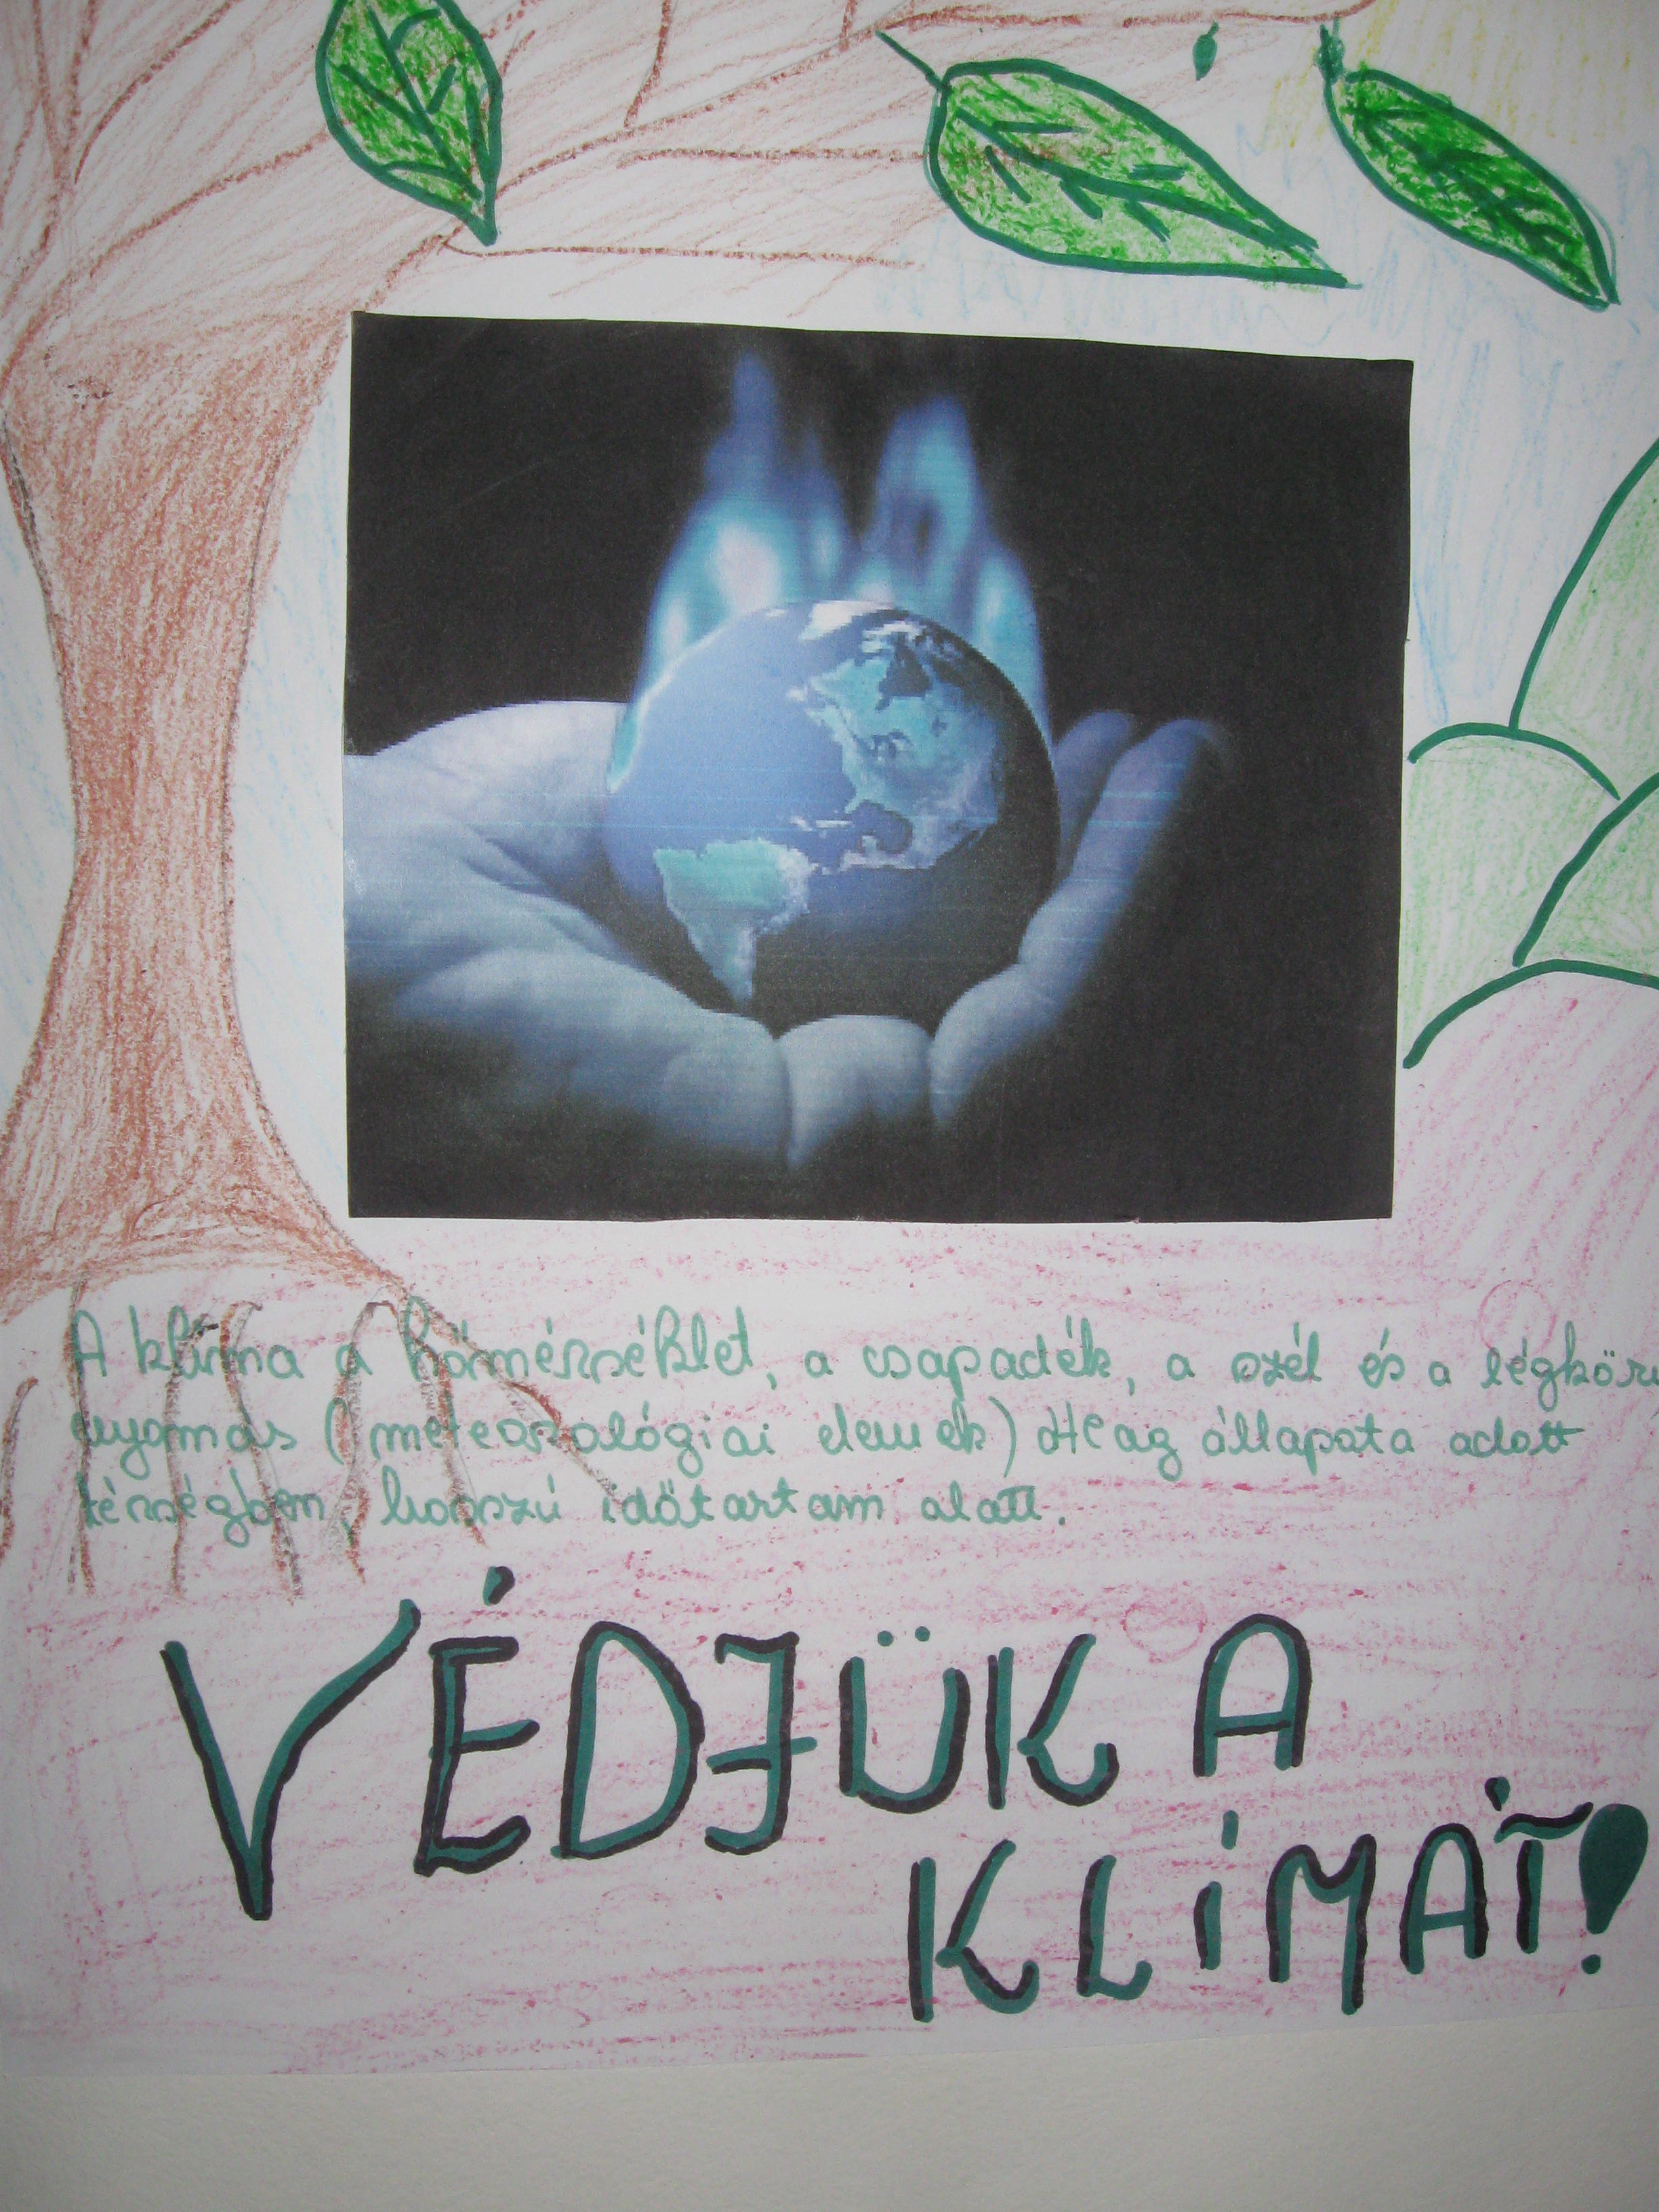 A klíma a hőmérséklet, a csapadék, a szél és a légköri
nyomás (meteorológiai elemek) állapota adott
térségben, hosszú időtartam alatt.
VÉDJÜK A
KLÍMÁT!